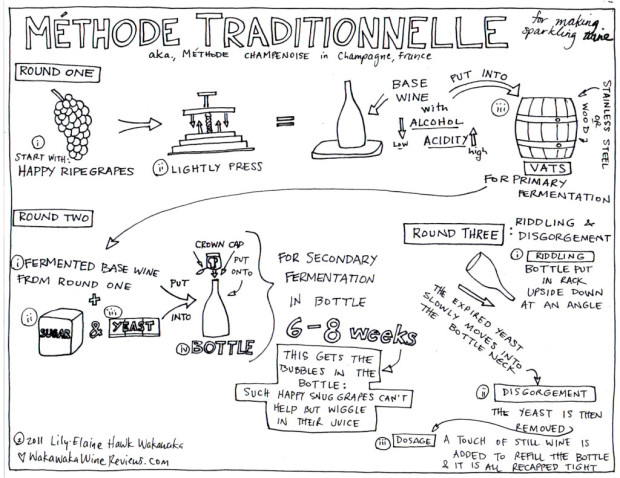 MÉTHODE TRADITIONNELLE
for making
sparkling wine
aka., MÉTHODE CHAMPENOISE in Champagne, France
ROUND ONE
i
START WITH:
HAPPY RIPE GRAPES
ii LIGHTLY PRESS
=
BASE
WINE
with
ALCOHOL
low
ACIDITY
high
PUT INTO
iii
STAINLESS STEEL
OR
WOOD
VATS
FOR PRIMARY
FERMENTATION
ROUND TWO
i FERMENTED BASE WINE
FROM ROUND ONE
+
ii
SUGAR
&
iii
YEAST
PUT
INTO
CROWN CAP
PUT
ONTO
iv BOTTLE
FOR SECONDARY
FERMENTATION
IN BOTTLE
6-8 weeks
THIS GETS THE
BUBBLES IN THE
BOTTLE:
SUCH HAPPY SNUG GRAPES CAN'T
HELP BUT WIGGLE
IN THEIR JUICE
ROUND THREE: RIDDLING &
DISGORGEMENT
i RIDDLING
BOTTLE PUT
IN RACK
UPSIDE DOWN
AT AN ANGLE
THE EXPIRED YEAST
SLOWLY MOVES INTO
THE BOTTLE NECK
ii DISGORGEMENT
THE YEAST IS THEN
REMOVED
iii DOSAGE A TOUCH OF STILL WINE IS
ADDED TO REFILL THE BOTTLE
& IT IS ALL RECAPPED TIGHT
© 2011 Lily-Elaine Hawk Wakawaka
WakawakaWineReviews.com